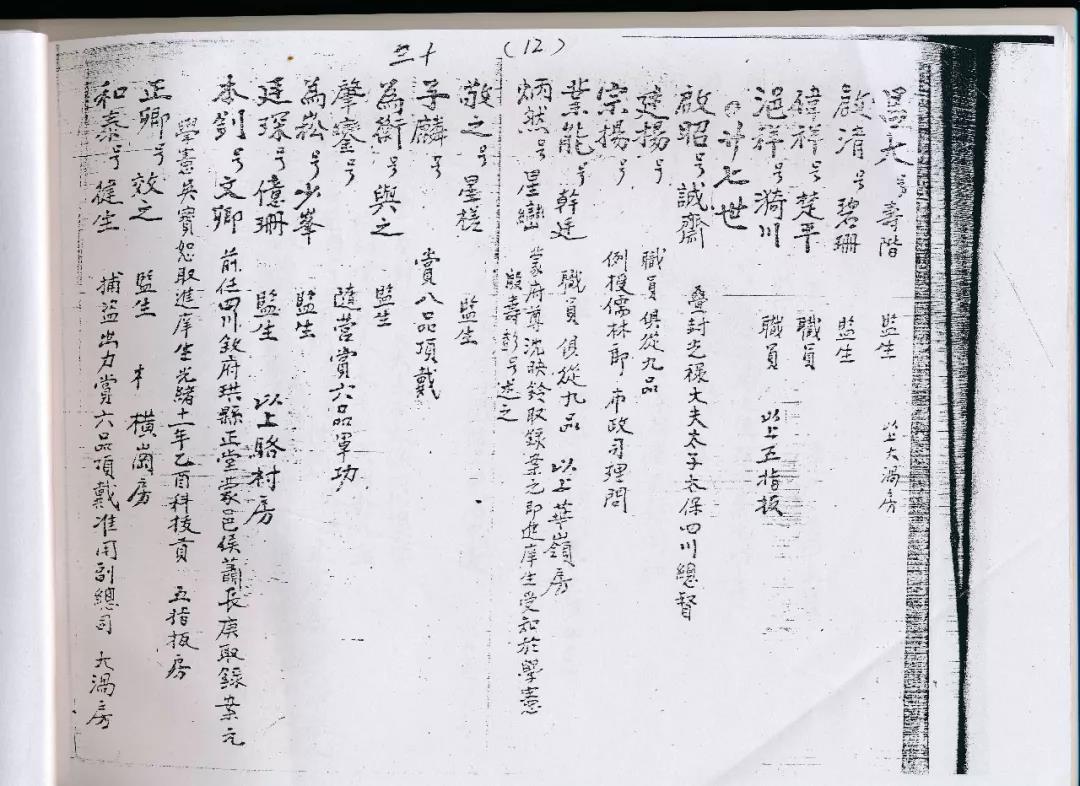 (12)
三十
昌大号壽階 監生 以上大湯房
啟清号碧珊 監生
偉祥号楚平 職員
浥祥号漪川 職員 以上五指板
○廿七世
啟昭号誠齋 疊封光祿大夫太子太保四川總督
建揚号 職員俱從九品
宗揚号 例授儒林郎布政司理問
業能号幹廷 職員俱從九品 以上華嶺房
炳然号星巒 蒙府尊沈映鈴取錄案之即進庠生受知於學憲
殷壽彭号述之
敬之号星槎 監生
子麟号 賞八品頂戴
為衡号與之 監生
肇鑾号 隨營賞六品軍功
為崧号少峯 監生
廷琛号億珊 監生 以上駱村房
承釗号文卿 前任四川敘府珙縣正堂蒙邑侯蕭長庚取錄案元
學憲吳寶恕取進庠生光緒十一年乙酉科拔貢 五指板房
正卿号效之 監生 橫崗房
和泰号健生 捕盜出力賞六品頂戴准用副總司 大湯房